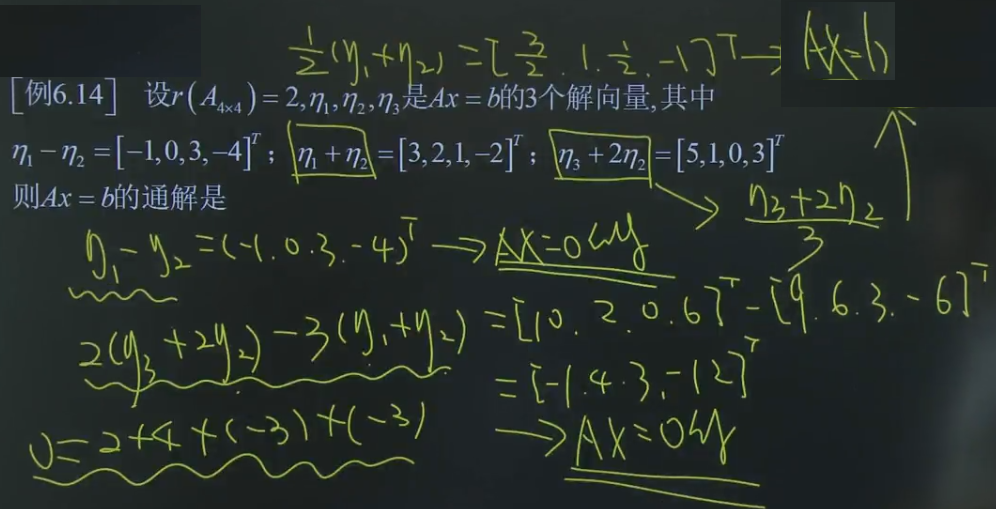 ½(η₁+η₂)=[3/2.1.½.-1]ᵀ→ AX=b
[例6.14] 设r(A₄ₓ₄)=2,η₁,η₂,η₃是Ax=b的3个解向量,其中
η₁-η₂=[-1,0,3,-4]ᵀ; η₁+η₂=[3,2,1,-2]ᵀ; η₃+2η₂=[5,1,0,3]ᵀ
则Ax=b的通解是
→ η₃+2η₂/3
η₁-η₂=(-1.0.3.-4)ᵀ→AX=0
2(η₃+2η₂)-3(η₁+η₂)=[10.2.0.6]ᵀ-[9.6.3.-6]ᵀ
=[-1.4.3.-12]ᵀ
0=2+4+(-3)+(-3)
→AX=0